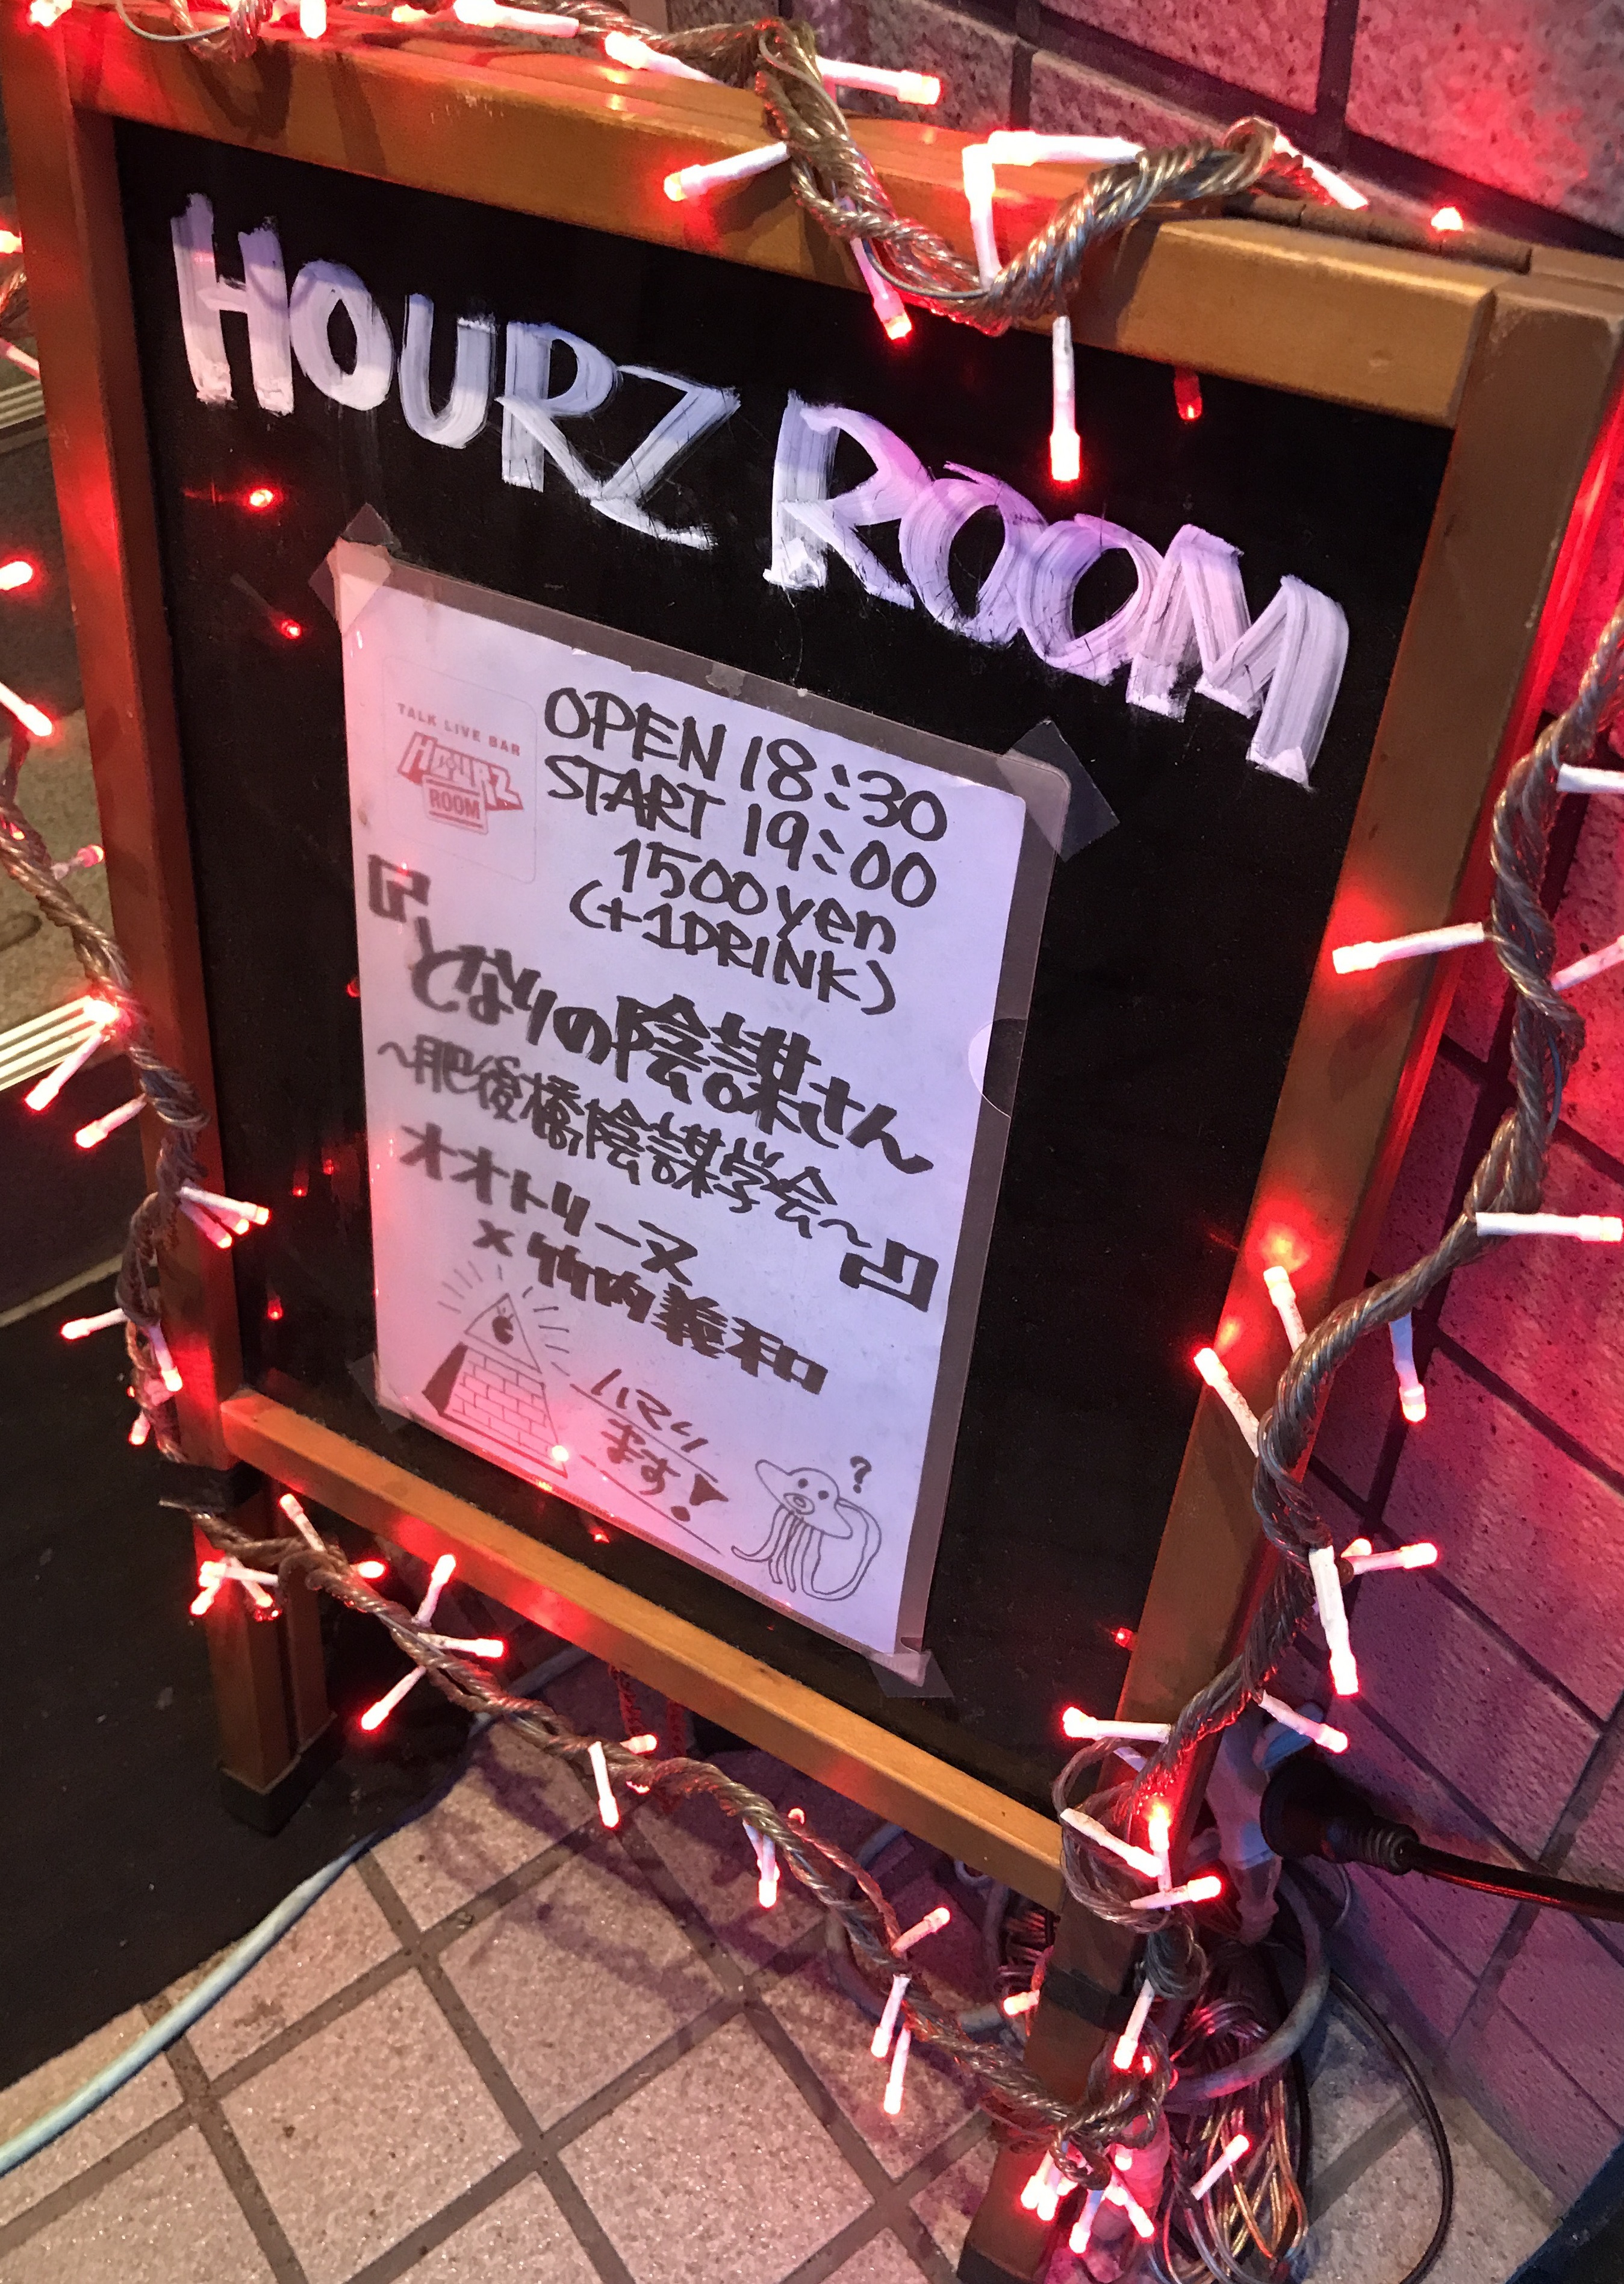 HOURZ ROOM
TALK LIVE BAR
HOURZ
ROOM
OPEN 18:30
START 19:00
1500yen
(+1DRINK)
『となりの陰謀さん
～肥後橋陰謀学会～』
オオトリーヌ
×竹内義和
ハマり
ます!
?